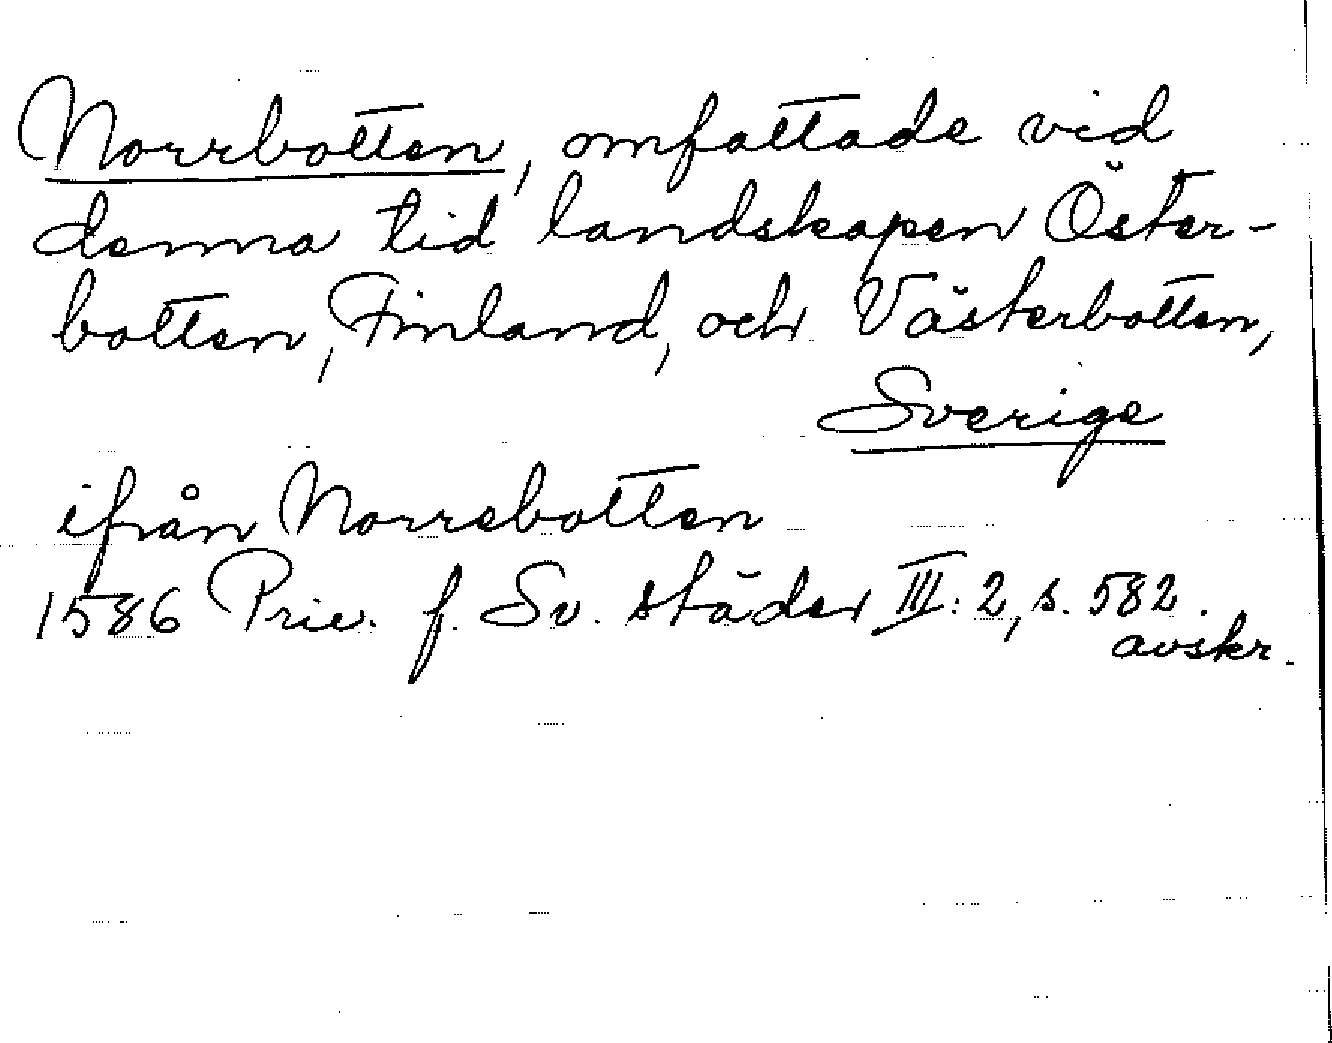 Norrbotten, omfattade vid
denna tid landskapen Öster-
botten, Finland, och Västerbotten,
Sverige
ifrån Norrebotten
1586 Priv. f. Sv. städer III: 2, s. 582.
avskr.